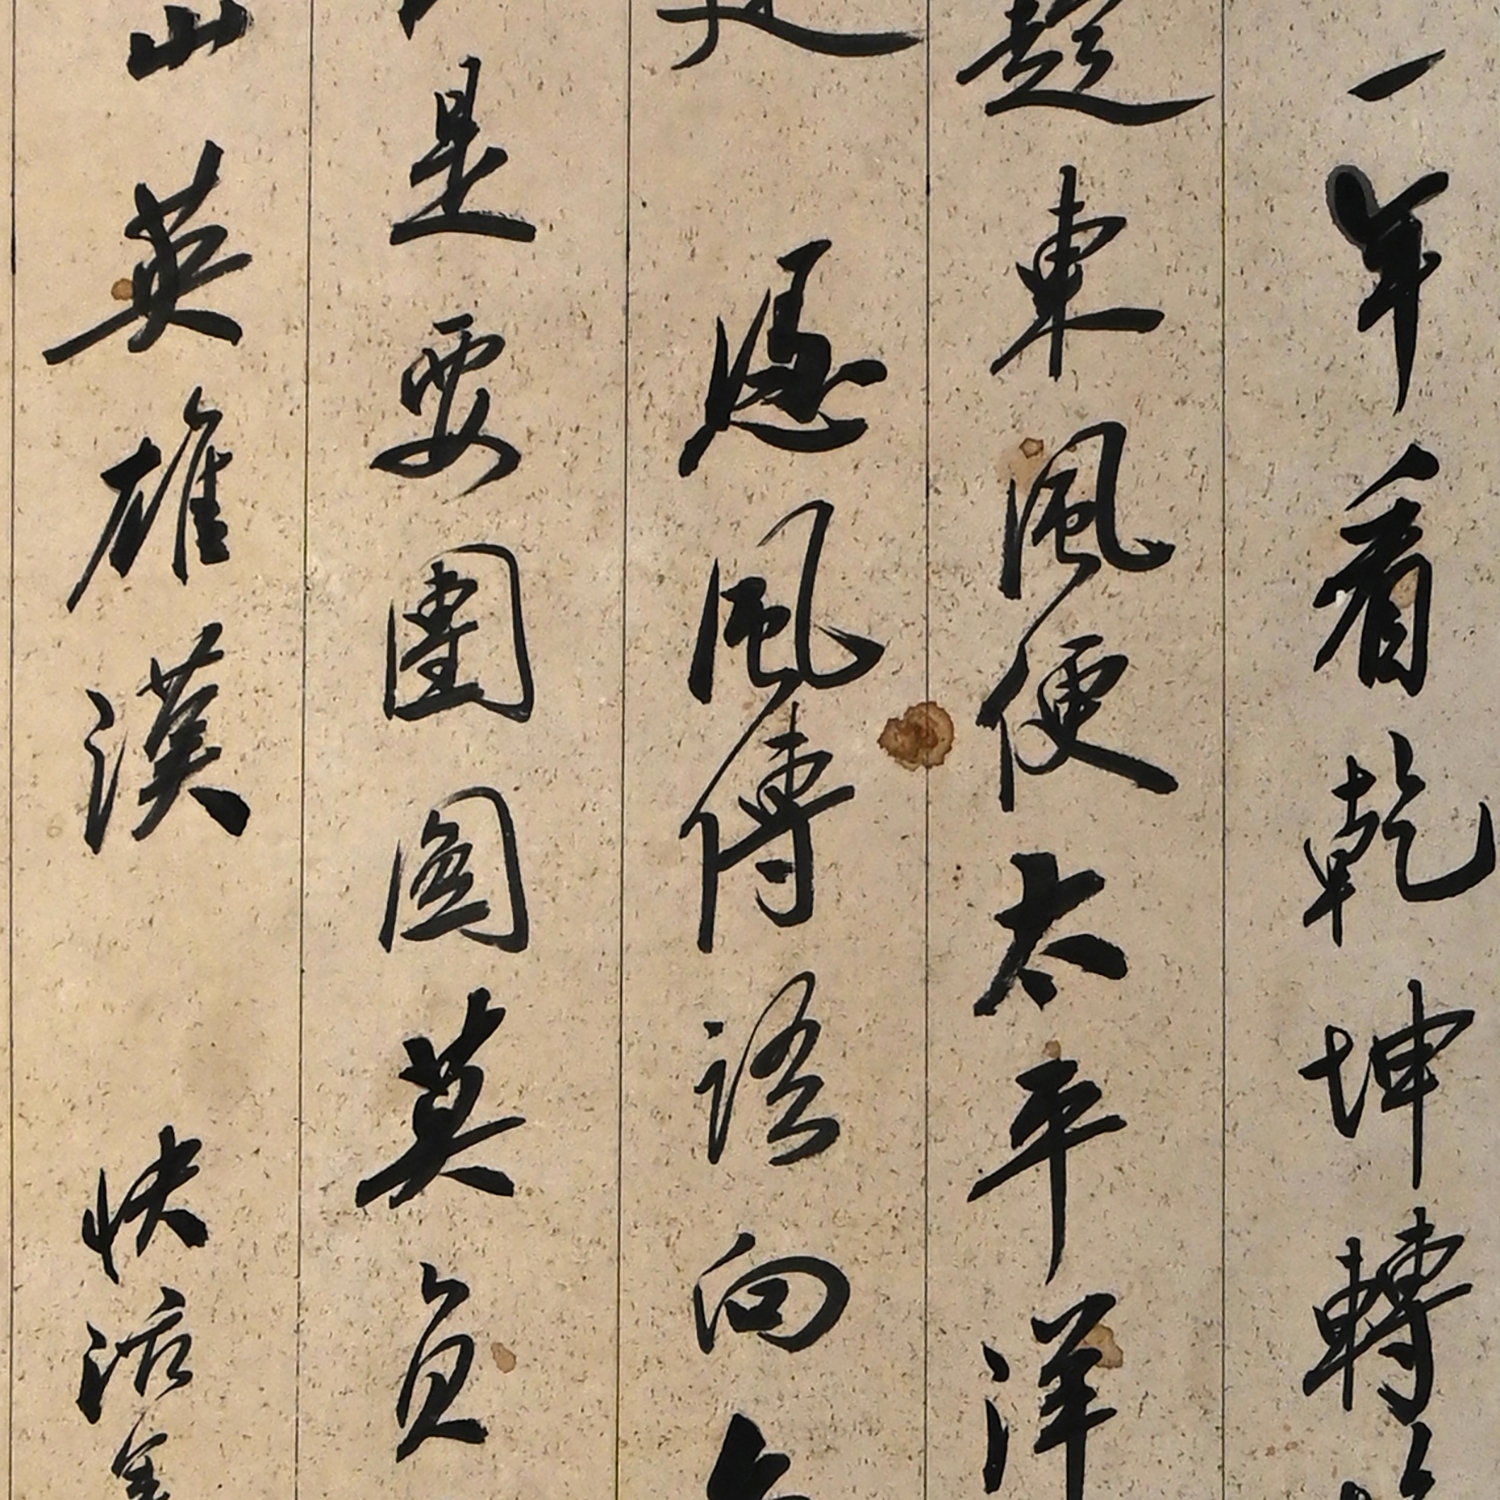 一年看乾坤轉
趁東風便太平洋
憑風傳語向
是要團圓莫負
山英雄漢 快活